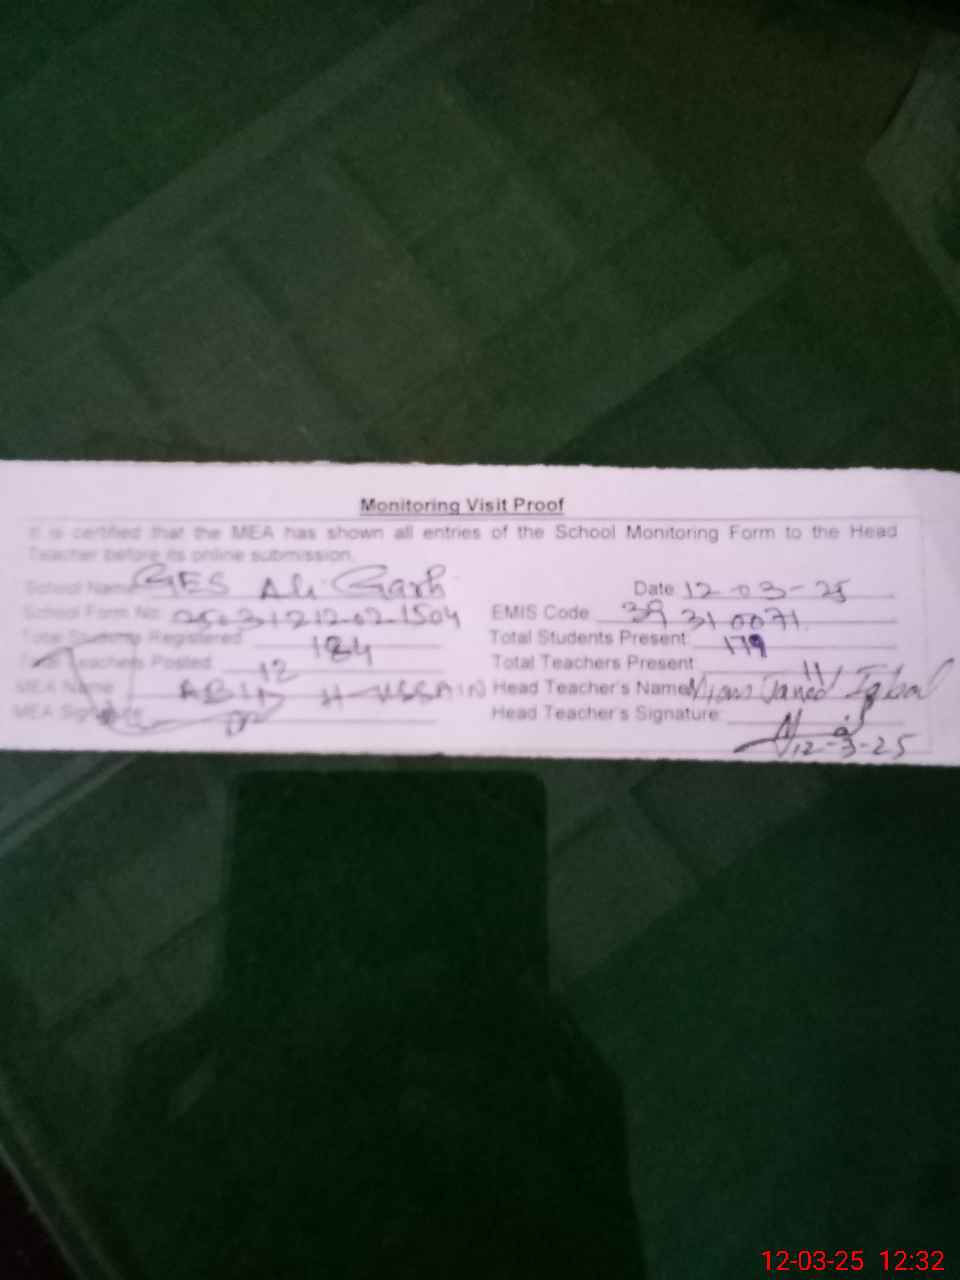 Monitoring Visit Proof
It is certified that the MEA has shown all entries of the School Monitoring Form to the Head
Teacher before its online submission.
School Name GES Ali Garh Date 12-03-25
School Form No. EMIS Code 39310071
Total Students Registered 184 Total Students Present 179
Total Teachers Posted 12 Total Teachers Present 11
MEA Name ABID HUSSAIN Head Teacher's Name Javed Iqbal
MEA Signature Head Teacher's Signature
12-3-25
12-03-25 12:32